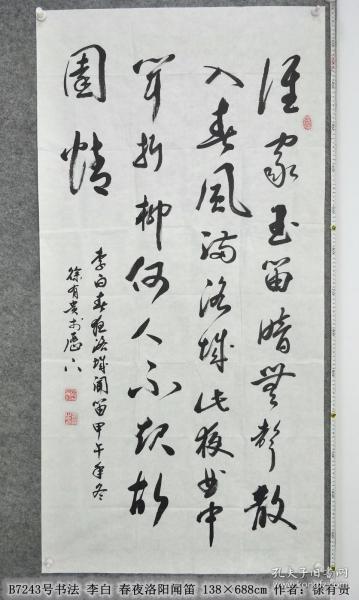 誰家玉笛暗飛聲散
入春風滿洛城此夜曲中
聞折柳何人不起故
園情
李白春夜洛城闻笛甲午年冬
徐有贵书
B7243号书法 李白 春夜洛阳闻笛 138×688cm 作者：徐有贵
孔夫子旧书网